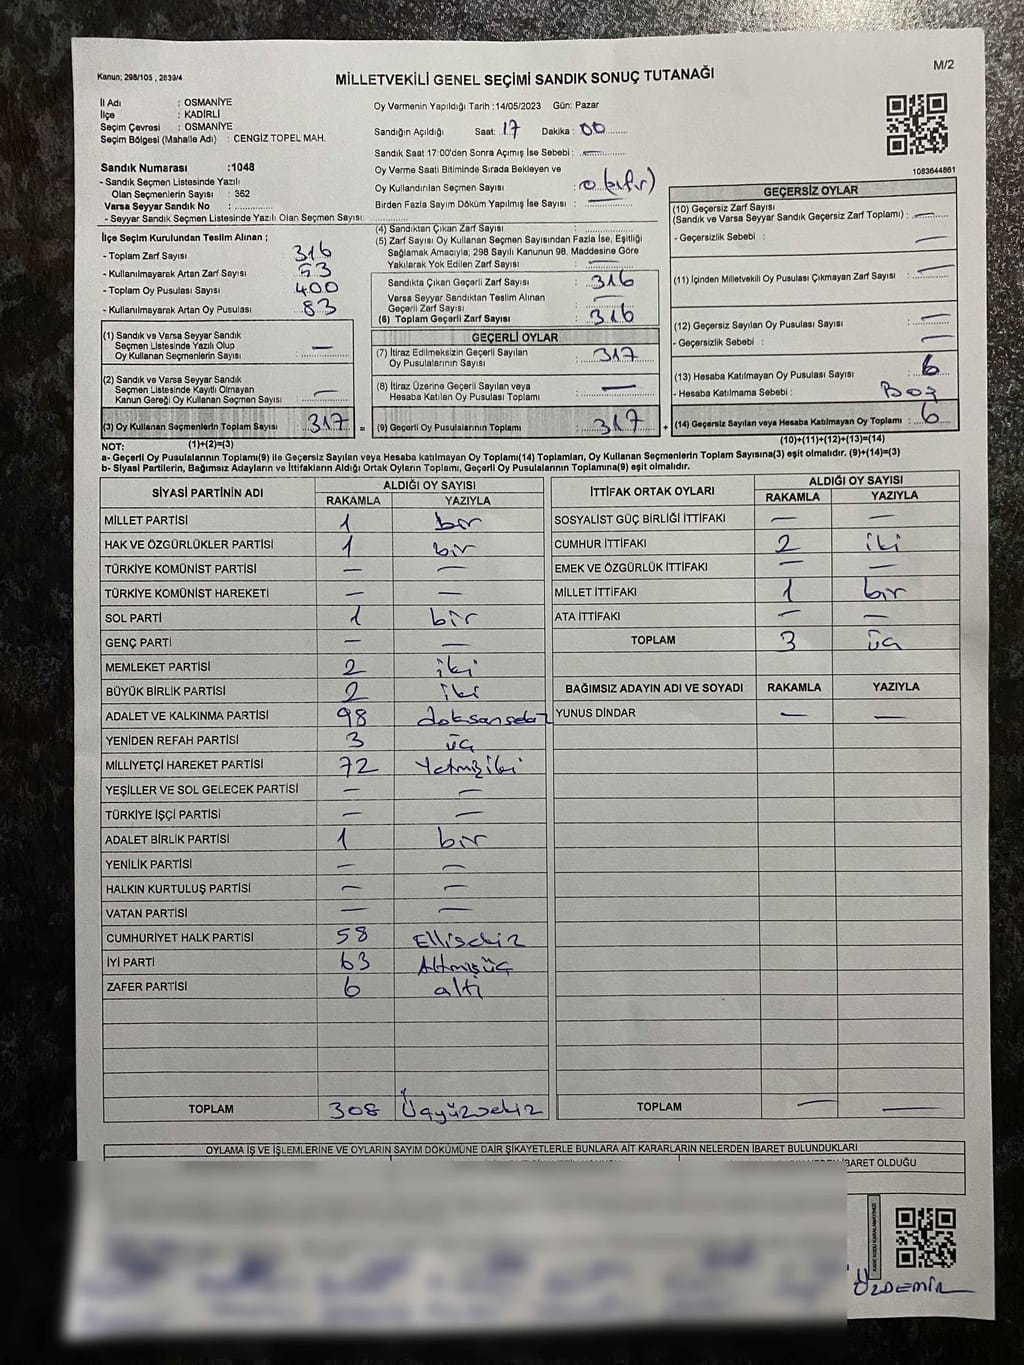 Kanun; 298/105 , 2839/4
MİLLETVEKİLİ GENEL SEÇİMİ SANDIK SONUÇ TUTANAĞI
M/2
İl Adı : OSMANİYE
İlçe : KADİRLİ
Seçim Çevresi : OSMANİYE
Seçim Bölgesi (Mahalle Adı) : CENGİZ TOPEL MAH.
Sandık Numarası :1048
- Sandık Seçmen Listesinde Yazılı
Olan Seçmenlerin Sayısı : 362
Varsa Seyyar Sandık No :
- Seyyar Sandık Seçmen Listesinde Yazılı Olan Seçmen Sayısı:
Oy Vermenin Yapıldığı Tarih :14/05/2023 Gün: Pazar
Sandığın Açıldığı Saat: 17 Dakika : 00
Sandık Saat 17:00'den Sonra Açımış İse Sebebi : —
Oy Verme Saati Bitiminde Sırada Bekleyen ve
Oy Kullandırılan Seçmen Sayısı : 0 (sıfır)
Birden Fazla Sayım Döküm Yapılmış İse Sayısı : —
1083644861
İlçe Seçim Kurulundan Teslim Alınan ;
- Toplam Zarf Sayısı 316
- Kullanılmayarak Artan Zarf Sayısı 53
- Toplam Oy Pusulası Sayısı 400
- Kullanılmayarak Artan Oy Pusulası 83
(1) Sandık ve Varsa Seyyar Sandık
Seçmen Listesinde Yazılı Olup
Oy Kullanan Seçmenlerin Sayısı : —
(2) Sandık ve Varsa Seyyar Sandık
Seçmen Listesinde Kayıtlı Olmayan
Kanun Gereği Oy Kullanan Seçmen Sayısı : —
(3) Oy Kullanan Seçmenlerin Toplam Sayısı : 317 =
(1)+(2)=(3)
(4) Sandıktan Çıkan Zarf Sayısı :
(5) Zarf Sayısı Oy Kullanan Seçmen Sayısından Fazla İse, Eşitliği
Sağlamak Amacıyla, 298 Sayılı Kanunun 98. Maddesine Göre
Yakılarak Yok Edilen Zarf Sayısı : —
Sandıkta Çıkan Geçerli Zarf Sayısı : 316
Varsa Seyyar Sandıktan Teslim Alınan
Geçerli Zarf Sayısı : —
(6) Toplam Geçerli Zarf Sayısı : 316
GEÇERLİ OYLAR
(7) İtiraz Edilmeksizin Geçerli Sayılan
Oy Pusulalarının Sayısı : 317
(8) İtiraz Üzerine Geçerli Sayılan veya
Hesaba Katılan Oy Pusulası Toplamı : —
(9) Geçerli Oy Pusulalarının Toplamı : 317 +
GEÇERSİZ OYLAR
(10) Geçersiz Zarf Sayısı
(Sandık ve Varsa Seyyar Sandık Geçersiz Zarf Toplamı) : —
- Geçersizlik Sebebi : —
(11) İçinden Milletvekili Oy Pusulası Çıkmayan Zarf Sayısı : —
(12) Geçersiz Sayılan Oy Pusulası Sayısı : —
- Geçersizlik Sebebi : —
(13) Hesaba Katılmayan Oy Pusulası Sayısı : 6
- Hesaba Katılmama Sebebi : Boş
(14) Geçersiz Sayılan veya Hesaba Katılmayan Oy Toplamı : 6
(10)+(11)+(12)+(13)=(14)
NOT:
a- Geçerli Oy Pusulalarının Toplamı(9) ile Geçersiz Sayılan veya Hesaba katılmayan Oy Toplamı(14) Toplamları, Oy Kullanan Seçmenlerin Toplam Sayısına(3) eşit olmalıdır. (9)+(14)=(3)
b- Siyasi Partilerin, Bağımsız Adayların ve İttifakların Aldığı Ortak Oyların Toplamı, Geçerli Oy Pusulalarının Toplamına(9) eşit olmalıdır.
SİYASİ PARTİNİN ADI ALDIĞI OY SAYISI
RAKAMLA YAZIYLA
MİLLET PARTİSİ 1 bir
HAK VE ÖZGÜRLÜKLER PARTİSİ 1 bir
TÜRKİYE KOMÜNİST PARTİSİ — —
TÜRKİYE KOMÜNİST HAREKETİ — —
SOL PARTİ 1 bir
GENÇ PARTİ — —
MEMLEKET PARTİSİ 2 iki
BÜYÜK BİRLİK PARTİSİ 2 iki
ADALET VE KALKINMA PARTİSİ 98 doksansekiz
YENİDEN REFAH PARTİSİ 3 üç
MİLLİYETÇİ HAREKET PARTİSİ 72 Yetmişiki
YEŞİLLER VE SOL GELECEK PARTİSİ — —
TÜRKİYE İŞÇİ PARTİSİ — —
ADALET BİRLİK PARTİSİ 1 bir
YENİLİK PARTİSİ — —
HALKIN KURTULUŞ PARTİSİ — —
VATAN PARTİSİ — —
CUMHURİYET HALK PARTİSİ 58 Ellisekiz
İYİ PARTİ 63 Altmışüç
ZAFER PARTİSİ 6 altı
TOPLAM 308 Üçyüzsekiz
İTTİFAK ORTAK OYLARI ALDIĞI OY SAYISI
RAKAMLA YAZIYLA
SOSYALİST GÜÇ BİRLİĞİ İTTİFAKI — —
CUMHUR İTTİFAKI 2 iki
EMEK VE ÖZGÜRLÜK İTTİFAKI — —
MİLLET İTTİFAKI 1 bir
ATA İTTİFAKI — —
TOPLAM 3 üç
BAĞIMSIZ ADAYIN ADI VE SOYADI RAKAMLA YAZIYLA
YUNUS DİNDAR — —
TOPLAM — —
OYLAMA İŞ VE İŞLEMLERİNE VE OYLARIN SAYIM DÖKÜMÜNE DAİR ŞİKAYETLERLE BUNLARA AİT KARARLARIN NELERDEN İBARET BULUNDUKLARI
İBARET OLDUĞU
ÖZDEMİR